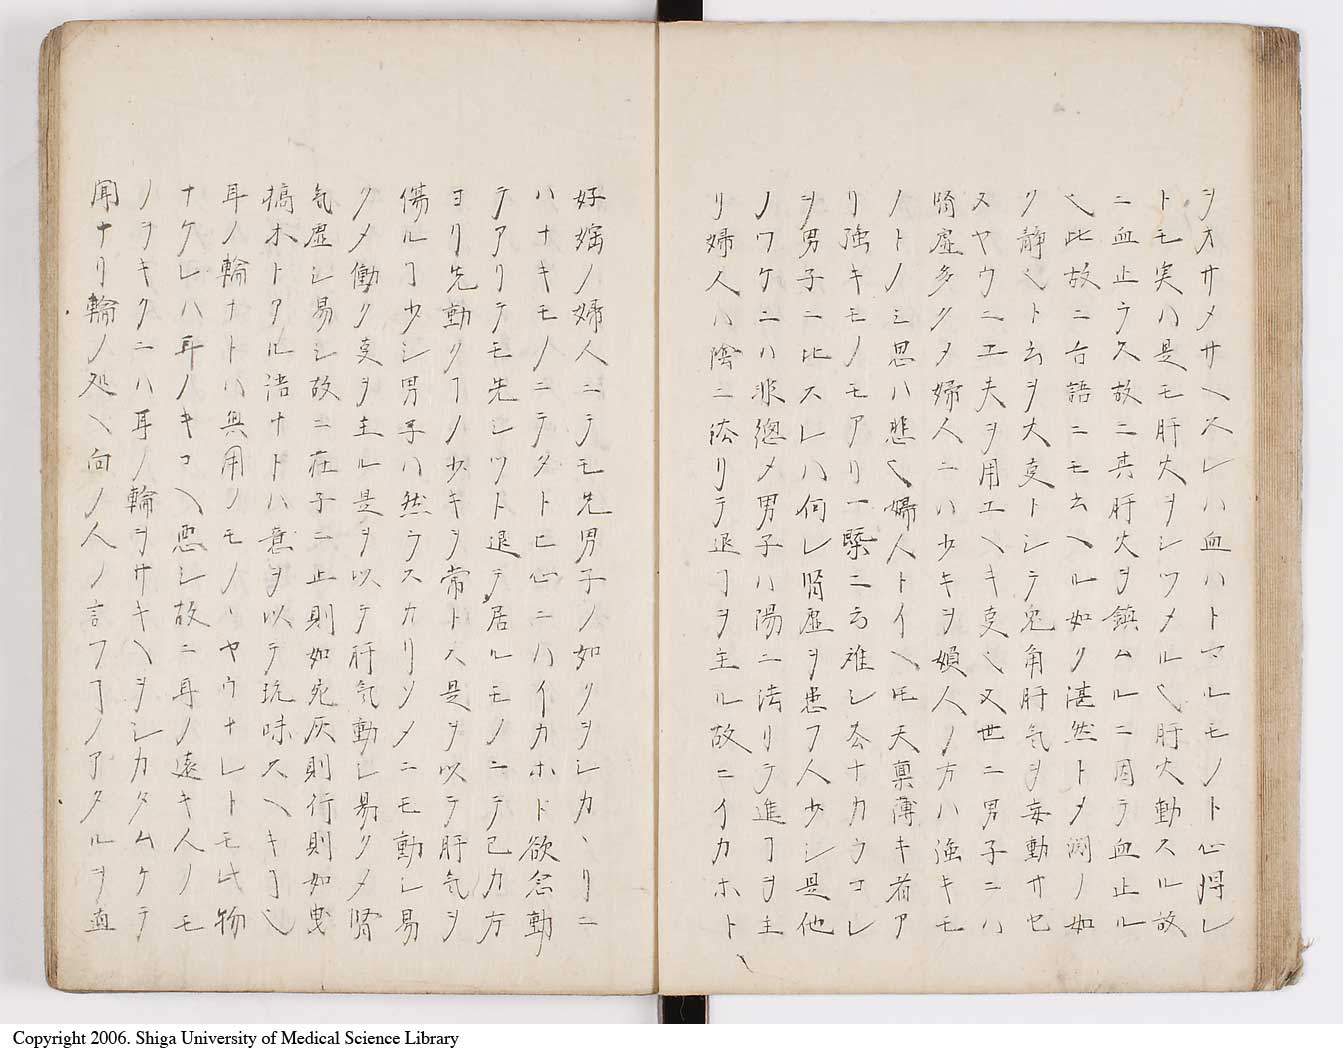 ヲオサメサヘスレハ血ハトマルモノト心得レ
トモ実ハ是モ肝火ヲシツメル也肝火動スル故
ニ血止ラス故ニ其肝火ヲ鎮ムルニ因テ血止ル
也此故ニ古語ニモ云ヘル如ク湛然トメ淵ノ如
ク静也ト云ヲ大事トシテ兎角肝気ヲ妄動サセ
スヤウニ工夫ヲ用エヘキ事也又世ニ男子ニハ
腎虚多クメ婦人ニハ少キヲ婦人ノ方ハ強キモ
ノトノミ思ハ悲也婦人トイヘ𪜈天稟薄キ者ア
リ強キモノモアリ一槩ニ云难シ去ナカラコレ
ヲ男子ニ比スレハ何レ腎虚ヲ患フ人少シ是他
ノワケニハ非總メ男子ハ陽ニ法リテ進ヿヲ主
リ婦人ハ陰ニ法リテ退ヿヲ主ル故ニイカホト
好婬ノ婦人ニテモ先男子ノ如クヲシカヽリニ
ハナキモノニテタトヒ心ニハイカホド欲念動
テアリテモ先シツト退テ居ルモノニテ已カ方
ヨリ先動クヿノ少キヲ常トス是ヲ以テ肝気ヲ
傷ルヿ少シ男子ハ然ラスカリソメニモ動レ易
クメ働ク事ヲ主ル是ヲ以テ肝気動シ易クメ腎
気虚シ易シ故ニ荘子ニ止則如死灰則行則如曳
槁木トアル語ナトハ意ヲ以テ玩味スヘキヿ也
耳ノ輪ナトハ無用ノモノヽヤウナレトモ此物
ナケレハ耳ノキコヘ悪シ故ニ耳ノ遠キ人ノモ
ノヲキクニハ耳ノ輪ヲサキヘヲシカタムケテ
聞ナリ輪ノ処ヘ向ノ人ノ言フヿノアタルヲ直
Copyright 2006. Shiga University of Medical Science Library